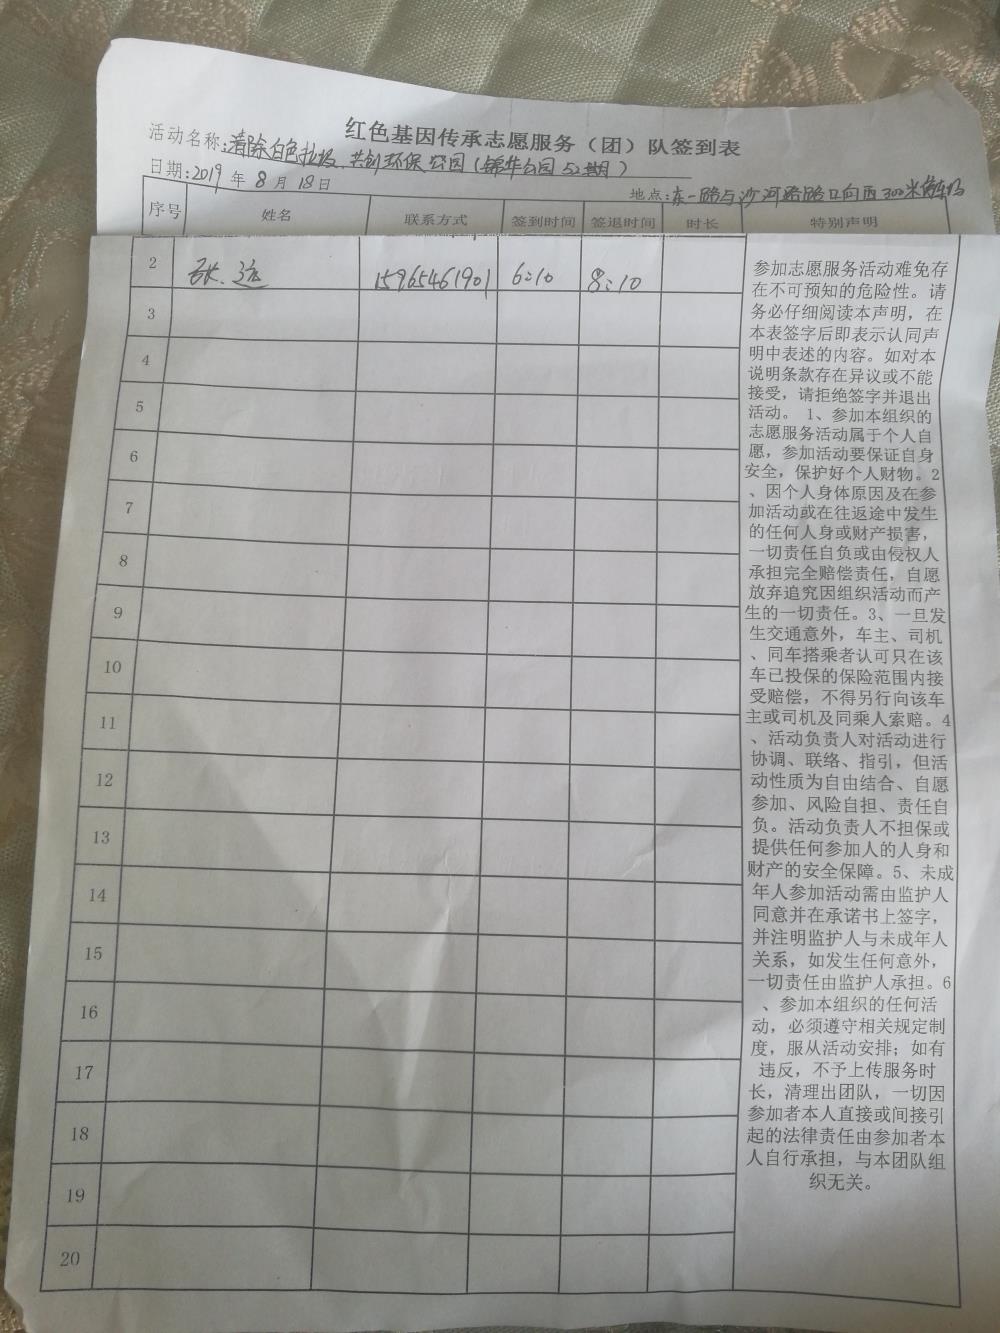 红色基因传承志愿服务（团）队签到表
活动名称:清除白色垃圾 共创环保公园（锦华公园52期）
日期:2019年8月18日
地点:东一路与沙河路路口向西300米停车场
序号 姓名 联系方式 签到时间 签退时间 时长 特别声明
2 张运 15965461901 6:10 8:10
3
4
5
6
7
8
9
10
11
12
13
14
15
16
17
18
19
20
参加志愿服务活动难免存
在不可预知的危险性。请
务必仔细阅读本声明，在
本表签字后即表示认同声
明中表述的内容。如对本
说明条款存在异议或不能
接受，请拒绝签字并退出
活动。 1、参加本组织的
志愿服务活动属于个人自
愿，参加活动要保证自身
安全，保护好个人财物。2
、因个人身体原因及在参
加活动或在往返途中发生
的任何人身或财产损害，
一切责任自负或由侵权人
承担完全赔偿责任，自愿
放弃追究因组织活动而产
生的一切责任。3、一旦发
生交通意外，车主、司机
、同车搭乘者认可只在该
车已投保的保险范围内接
受赔偿，不得另行向该车
主或司机及同乘人索赔。4
、活动负责人对活动进行
协调、联络、指引，但活
动性质为自由结合、自愿
参加、风险自担、责任自
负。活动负责人不担保或
提供任何参加人的人身和
财产的安全保障。5、未成
年人参加活动需由监护人
同意并在承诺书上签字，
并注明监护人与未成年人
关系，如发生任何意外，
一切责任由监护人承担。6
、参加本组织的任何活
动，必须遵守相关规定制
度，服从活动安排；如有
违反，不予上传服务时
长，清理出团队，一切因
参加者本人直接或间接引
起的法律责任由参加者本
人自行承担，与本团队组
织无关。